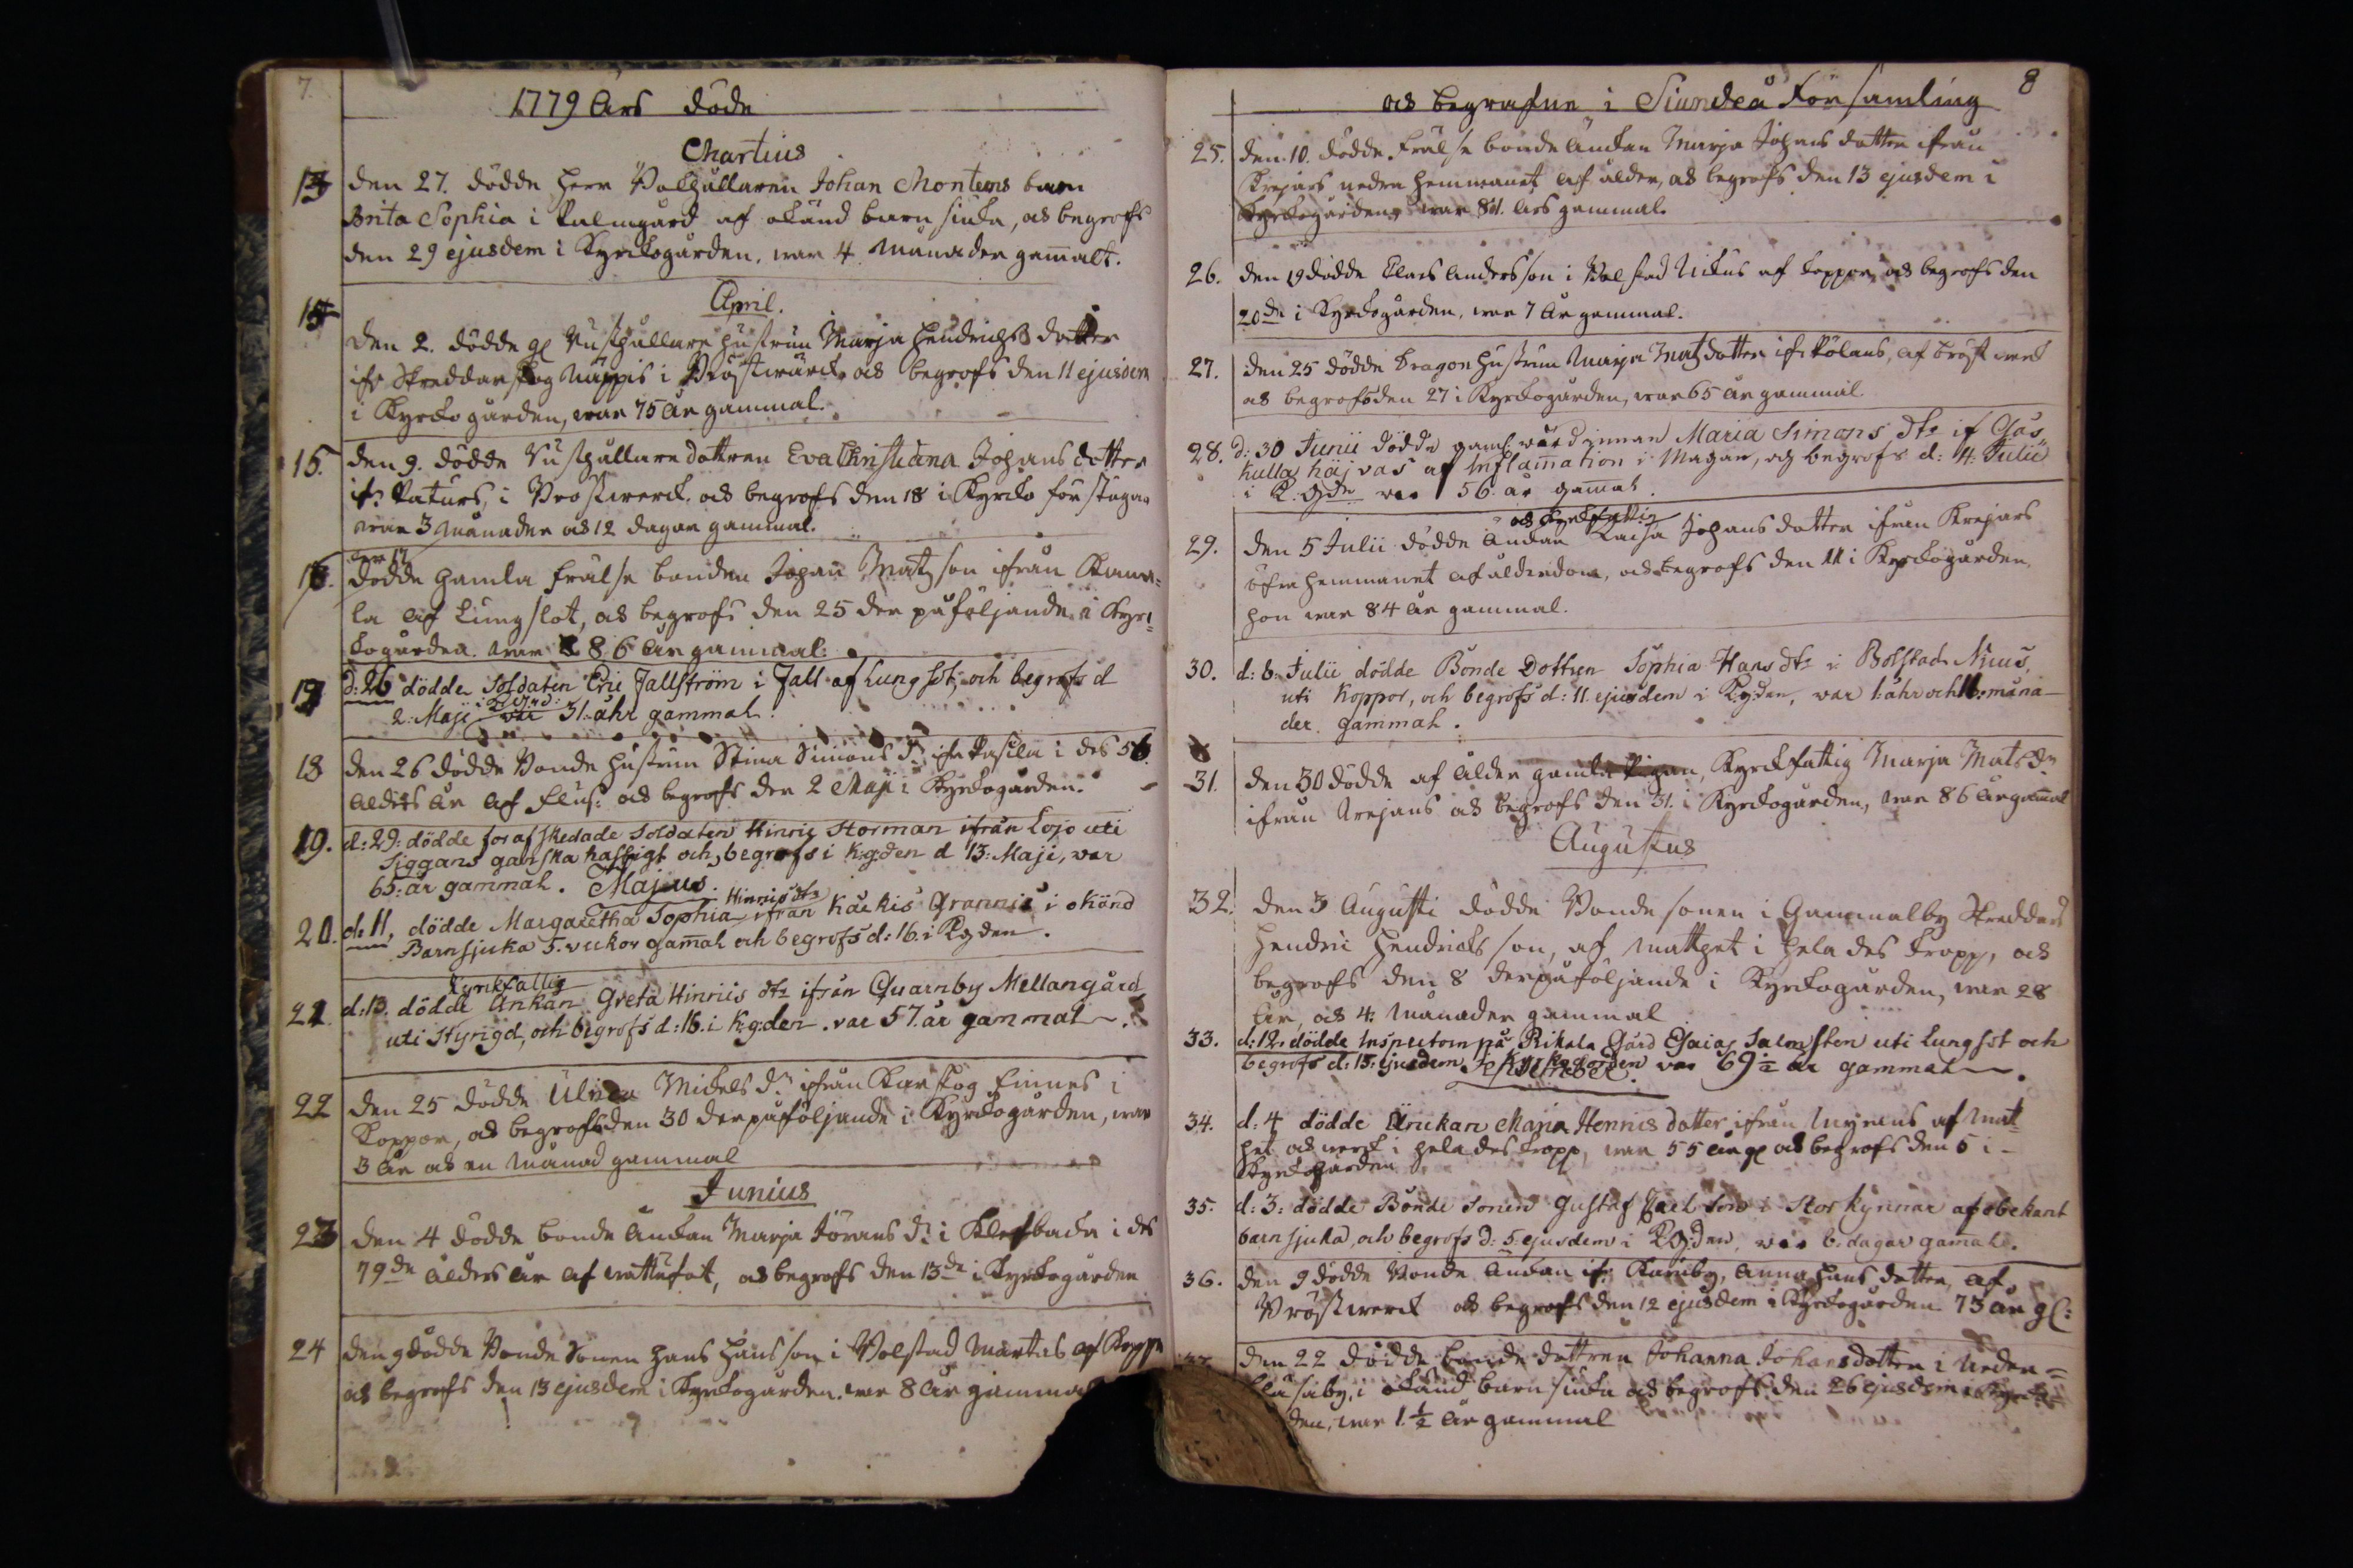 7.
1779 Års döde
Martius
13 den 27. dödde Herr Bokhållaren Johan Montens barn
Brita Sophia i Palmgård af okänd barn siuka, och begrofs
den 29 ejusdem i Kyrckogården. war 4 Månader gam̄alt.
April.
14 den 2. dödde gl Rusthållare hustrun Marja Hendrichs dotter
ifr Skreddarskog Näppis i Bröstwärck, och begrofs den 11 ejusdem
i Kyrckogården, war 75 år gammal.
15. den 9. dödde Rusthållare dottren Eva Christiana Johans dotter
ifr. i Bröstwerck. och begrofs den 18 i Kyrcko förstugan
war 3 månader och 12 dagar gammal.
den 17
16. dödde Gamla frälse bonden Johan Matzson ifrån
la af Lungsot, och begrofs den 25 der påföljande i Kyrc=
kogården. war 86 år gammal.
17 d: 26 dödde Soldaten Eric Fallström i Fall af Lungsot, och begrofs d
2: Maji i war 31: åhr gammal.
18 den 26 dödde Bonde hustrun Stina Simons dr ifr Pasila i des 56
alders år af och begrofs den 2 Maji i Kyrckogården.
19. d: 29: dödde förafskedade Soldaten Hinric Storman ifrån Lojo uti
Siggans ganska hastigt och begrofs i K:g:den d 13: Maji, war
65: år gammal. Majus.
Hinrics dtr
20. d: 11, dödde Margaretha Sophia ifrån Käckis Grannis i okänd
Barnsjuka 5. vickor gam̄al och begrofs d: 16. i K.g.den.
Kyrckfattig
21. d: 13. dödde Änkan Greta Hinrics dtr ifrån Quarnby Mellangård
uti Styngd, och begrofs d: 16. i K:g:den. var 57. år gammal.
22 den 25 dödde Ulrica Mickels dr ifrån Karskog Finnes i
Koppor, och begrofs den 30 derpåföljande i Kyrckogården, war
3 år och en Månad gammal
Junius
23 den 4 dödde bonde Änkan Marja Jörans dr i Klefbacka i des
79de ålders år af wattusot, och begrofs den 13de i Kyrckogården
24 den 9 dödde Bonde Sonen Hans Hansson i Bolstad Martus af Koppor
och begrofs den 13 ejusdem i Kyrckogården. war 8 år gammal
och begrafne i Siundeå Församling
8
25. den. 10. dödde. Frälse bonde Änkan Marja Johans dotter ifrån
Krejars nedra hemmanet af ålder, och begrofs den 13 ejusdem i
Kyrckogården, war 81. års gammal.
26. den 19 dödde Clas Andersson i Bolstad Nickus af koppor, och begrofs den
20de i Kyrckogården, war 7 år gammal.
27. den 25 dödde Dragon hustrun Marja Matz dotter ifr Pölans, af bröstwerck
och begrofs den 27 i Kyrckogården, war 65 år gammal.
28. d: 30 Junii dödde gaml wärdinnan Maria Simons dtr if Gås
kulla Hajvas af Inflam̄ation i Magan, og begrofs d: 4: Julii
i K. gdn war 56. år gam̄al.
och Kyrckfattig
29. den 5 Julii dödde Änkan Caisa Johans dotter ifrån Krejars
öfre hemmanet af ålderdom, och begrofs den 11 i Kyrckogården,
hon war 84 år gammal.
30. d: 8. Julii dödde Bonde Dottren Sophia Hans dtr i Bolstad Nicus,
uti Koppor, och begrofs d: 11. ejusdem i K:g:den, var 1: åhr och 11: måna-
der gammal.
31. den 30 dödde af ålder gamla Pigan, Kyrckfattig Marja Mats dr
ifrån Krejans och begrofs den 31. i Kyrckogården, war 86 år gam̄al
Augustus
32. den 3 Augusti dödde Bonde sonen i Gammalby Skreddars
Hendric Hendricksson, af matthet i hela des kropp, och
begrofs den 8 derpåföljande i Kyrckogården, war 28
år, och 4: Månader gammal
33. d: 12. dödde Inspectorn på Rikala Gård Esaias Salmsten uti Lungsot och
begrofs d: 15: ejusdem i Kyrkogården var 69 ½ år gammal.
September.
34. d: 4 dödde Änckan Maria Henrics dotter ifrån Myrans af Mat
het och werck i hela des kropp, war 55 år gl och begrofs den 5 i
Kyrckogården
35. d: 3: dödde Bonde Sonen Gustaf Carlson i Storkynnar af obekant
barnsjuka, och begrofs d: 5 ejusdem i K.g:den, war 6. dagar gam̄al.
36. den 9 dödde Bonde Änkan ifr. Karuby, Anna Hans dotter, af
Bröstwerck och begrofs den 12 ejusdem i Kyrckogården 73 år gl:
37. den 22 dödde bonde dottren Johanna Johansdotter i Neder=
i okänd barn siuka och begrofs den 26 ejusdem i Kyrcko=
den, war 1. ½ år gammal